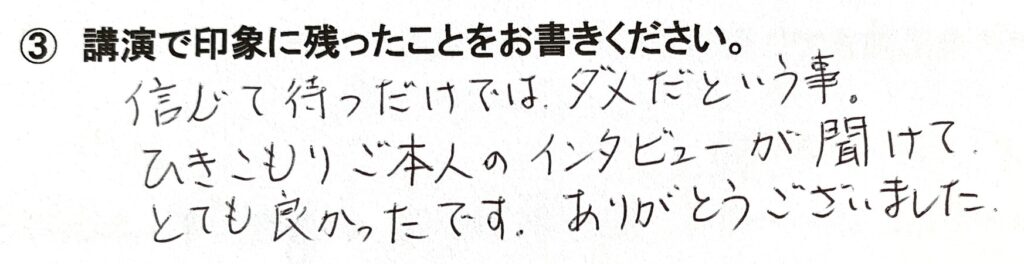 ③ 講演で印象に残ったことをお書きください。
信じて待つだけでは、ダメだという事。
ひきこもりご本人のインタビューが聞けて、
とても良かったです。ありがとうございました。